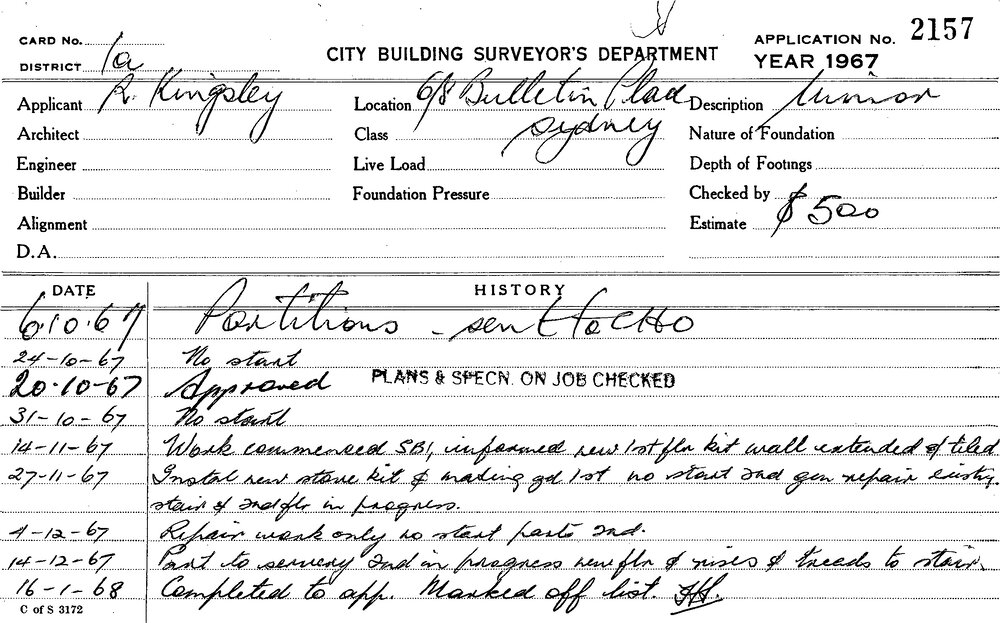 CARD No.
DISTRICT 1a
CITY BUILDING SURVEYOR'S DEPARTMENT
APPLICATION No. 2157
YEAR 1967
Applicant R. Kingsley
Location 6/8 Bulletin Place Sydney
Description Minor
Architect
Class
Nature of Foundation
Engineer
Live Load
Depth of Footings
Builder
Foundation Pressure
Checked by
Alignment
Estimate $500
D.A.
DATE HISTORY
6.10.67 Partitions - sent to CHO
24-10-67 No start
20.10-67 Approved PLANS & SPECN. ON JOB CHECKED
31-10-67 No start
14-11-67 Work commenced SBI, informed new 1st flr kit wall extended & tiled
27-11-67 Instal new stove kit & making gd 1st no start 2nd gen repair existg.
stair & 2nd flr in progress.
4-12-67 Repair work only no start parts 2nd.
14-12-67 Part to 2nd in progress new flr & rises & treads to stair.
16-1-68 Completed to app. Marked off list.
C of S 3172